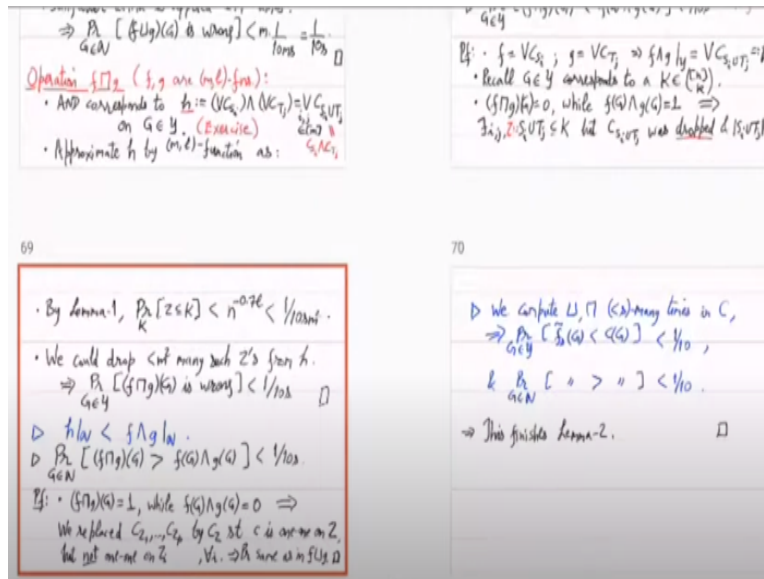 ⇒ Pr_{G∈N} [(f⊔g)(G) is wrong] < m. 1/10ms = 1/10s. □
Operation f⊓g (f,g are (m,l)-fns):
• AND corresponds to h := (∨C_{S_i}) ∧ (∨C_{T_j}) = ∨ C_{S_i∪T_j}
on G∈Y. (Exercise)
C_{S_i}∧C_{T_j}
• Approximate h by (m,l)-function as:
G∈Y
Pf: • f = ∨C_{S_i} ; g = ∨C_{T_j} ⇒ f∧g|_Y = ∨C_{S_i∪T_j} =
• Recall G∈Y corresponds to a K∈([n] k).
• (f⊓g)(G)=0, while f(G)∧g(G)=1 ⇒
∃i,j, Z:=S_i∪T_j ⊆ K but C_{S_i∪T_j} was dropped & |S_i∪T_j|
69
• By Lemma-1, Pr_K [Z⊆K] < n^{-0.7l} < 1/10sm².
• We could drop <m² many such Z's from h.
⇒ Pr_{G∈Y} [(f⊓g)(G) is wrong] < 1/10s □
▷ h|_N < f⊓g|_N.
▷ Pr_{G∈N} [(f⊓g)(G) > f(G)∧g(G)] < 1/10s.
Pf: • (f⊓g)(G)=1, while f(G)∧g(G)=0 ⇒
We replaced C_{Z_1},...,C_{Z_p} by C_Z st c is one-one on Z,
but not one-one on Z_i , ∀i. ⇒ Pr same as in f⊔g. □
70
▷ We compute ⊔,⊓ (<s)-many times in C,
⇒ Pr_{G∈Y} [f(G) < C(G)] < 1/10 ,
& Pr_{G∈N} [ " > " ] < 1/10.
⇒ This finishes Lemma-2. □